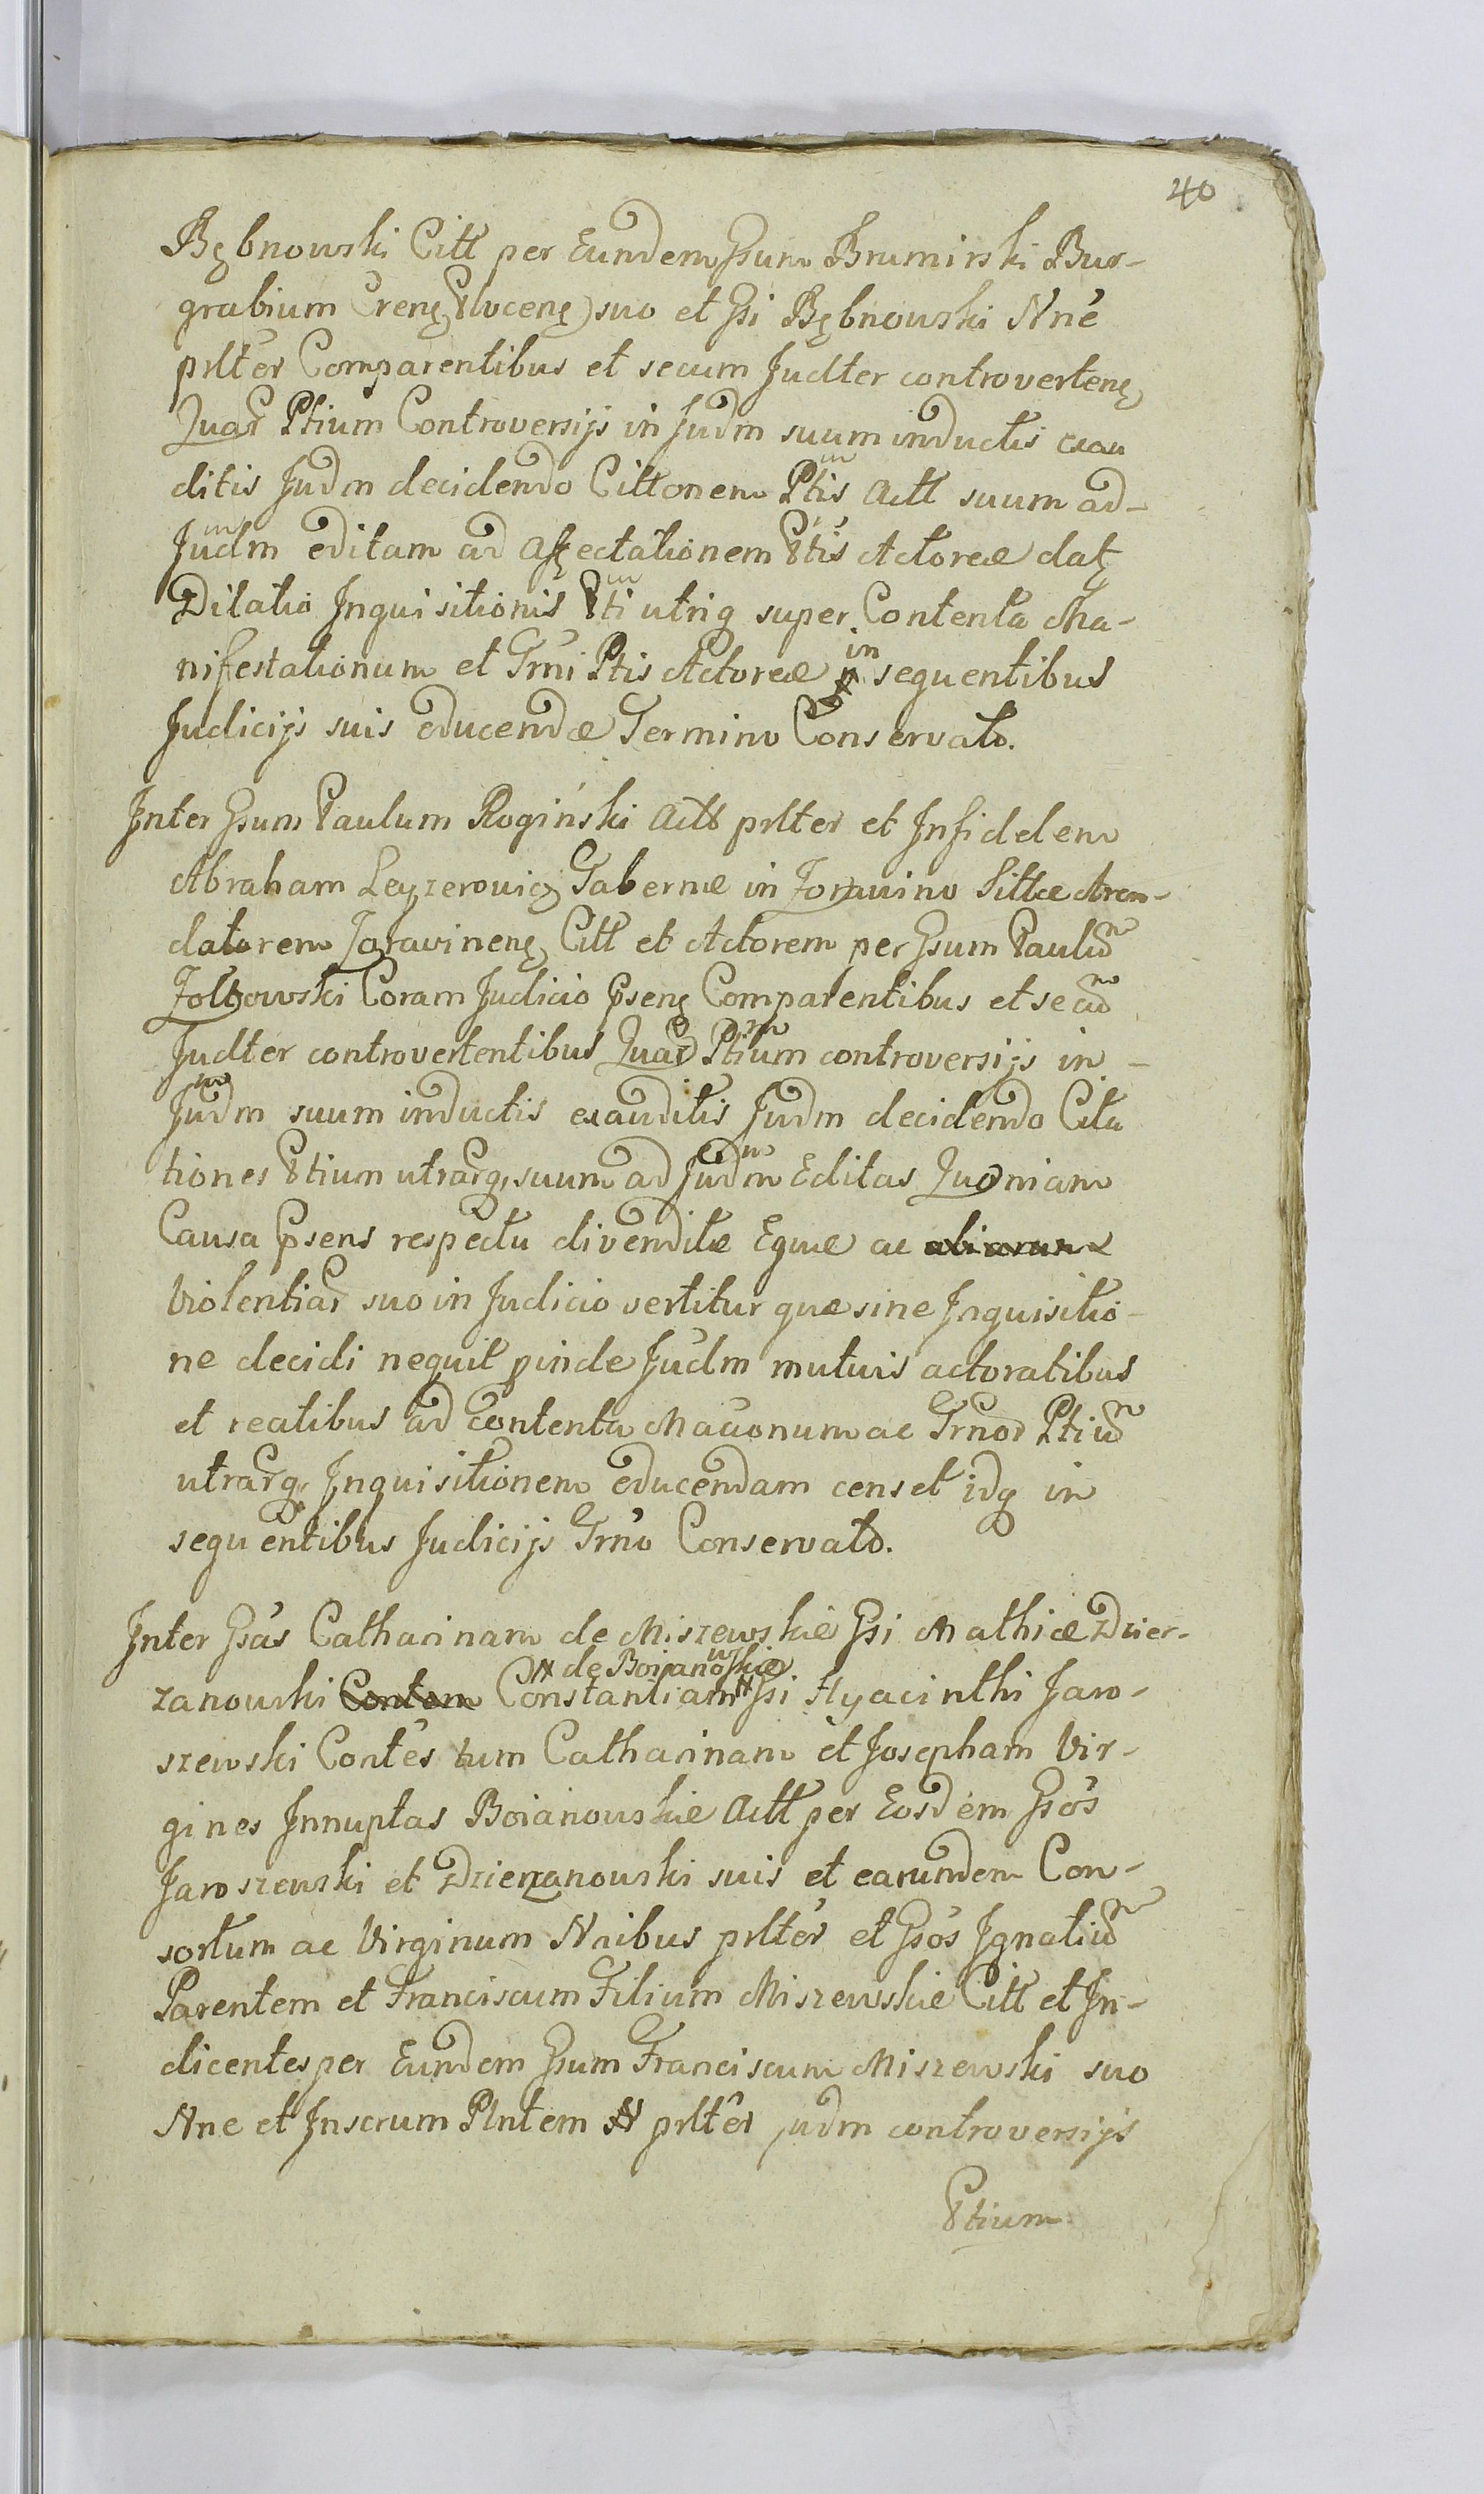 40
Bębnowski Citt per Eundem Gsum Brumirski Bur-
grabium Crenę Plocenę suo et Gsi Bębnowski Nne
prlter Comparentibus et secum Judter controvertenę
Quar Ptium Controversijs in Judm suum inductis exau
ditis Judm decidendo Cittonem Ptis Actt suum ad
Judm editam ad affectationem Ptis Actoreæ datę
Dilatio Inquisitionis Pti utriq super Contenta Ma-
nifestationum et Trni Ptis Actoreæ in sequentibus
Judicijs suis educendæ Termino Conservato.
Inter Gsum Paulum Rogiński Actt prlter et Infidelem
Abraham Leyzerowicz Tabernæ in Zorawino Sittæ Aren-
datorem Zorawinenę Citt et Actorem per Gsum Paulum
Zoltowski Coram Judicio Psenę Comparentibus et secum
Judter controvertentibus Quar Ptium controversijs in
Judm suum inductis exauditis Judm decidendo Cita
tiones Ptium utrarq, suum ad Judm Editas Quoniam
Causa Psens respectu divenditæ Equæ ac aliarum
Violentiar suo in Judicio vertitur quæ sine Inquisitio-
ne decidi nequit pinde Judm mutuis actoratibus
et reatibus ad contenta Maconum ac Trnor Ptium
utrarq, Inquisitionem educendam censet idq in
sequentibus Judicijs Trno Conservato.
Inter Gsas Catharinam de Miszewskie Gsi Mathiæ Dzier-
# de Boianowskie
zanowski Contem Constantiam # Gsi Hyacinthi Jaro-
szewski Contes tum Catharinam et Josepham Vir-
gines Innuptas Boianowskie Actt per Eosdem Gsos
Jaroszewski et Dzierzanowski suis et earundem Con-
sortum ac Virginum Nnibus prlter et Gsos Ignatium
Parentem et Franciscum Filium Miszewskie Citt et In-
dicentes per Eundem Gsum Franciscum Miszewski suo
Nne et Inscrum Plntem N prlter judm controversijs
Ptium